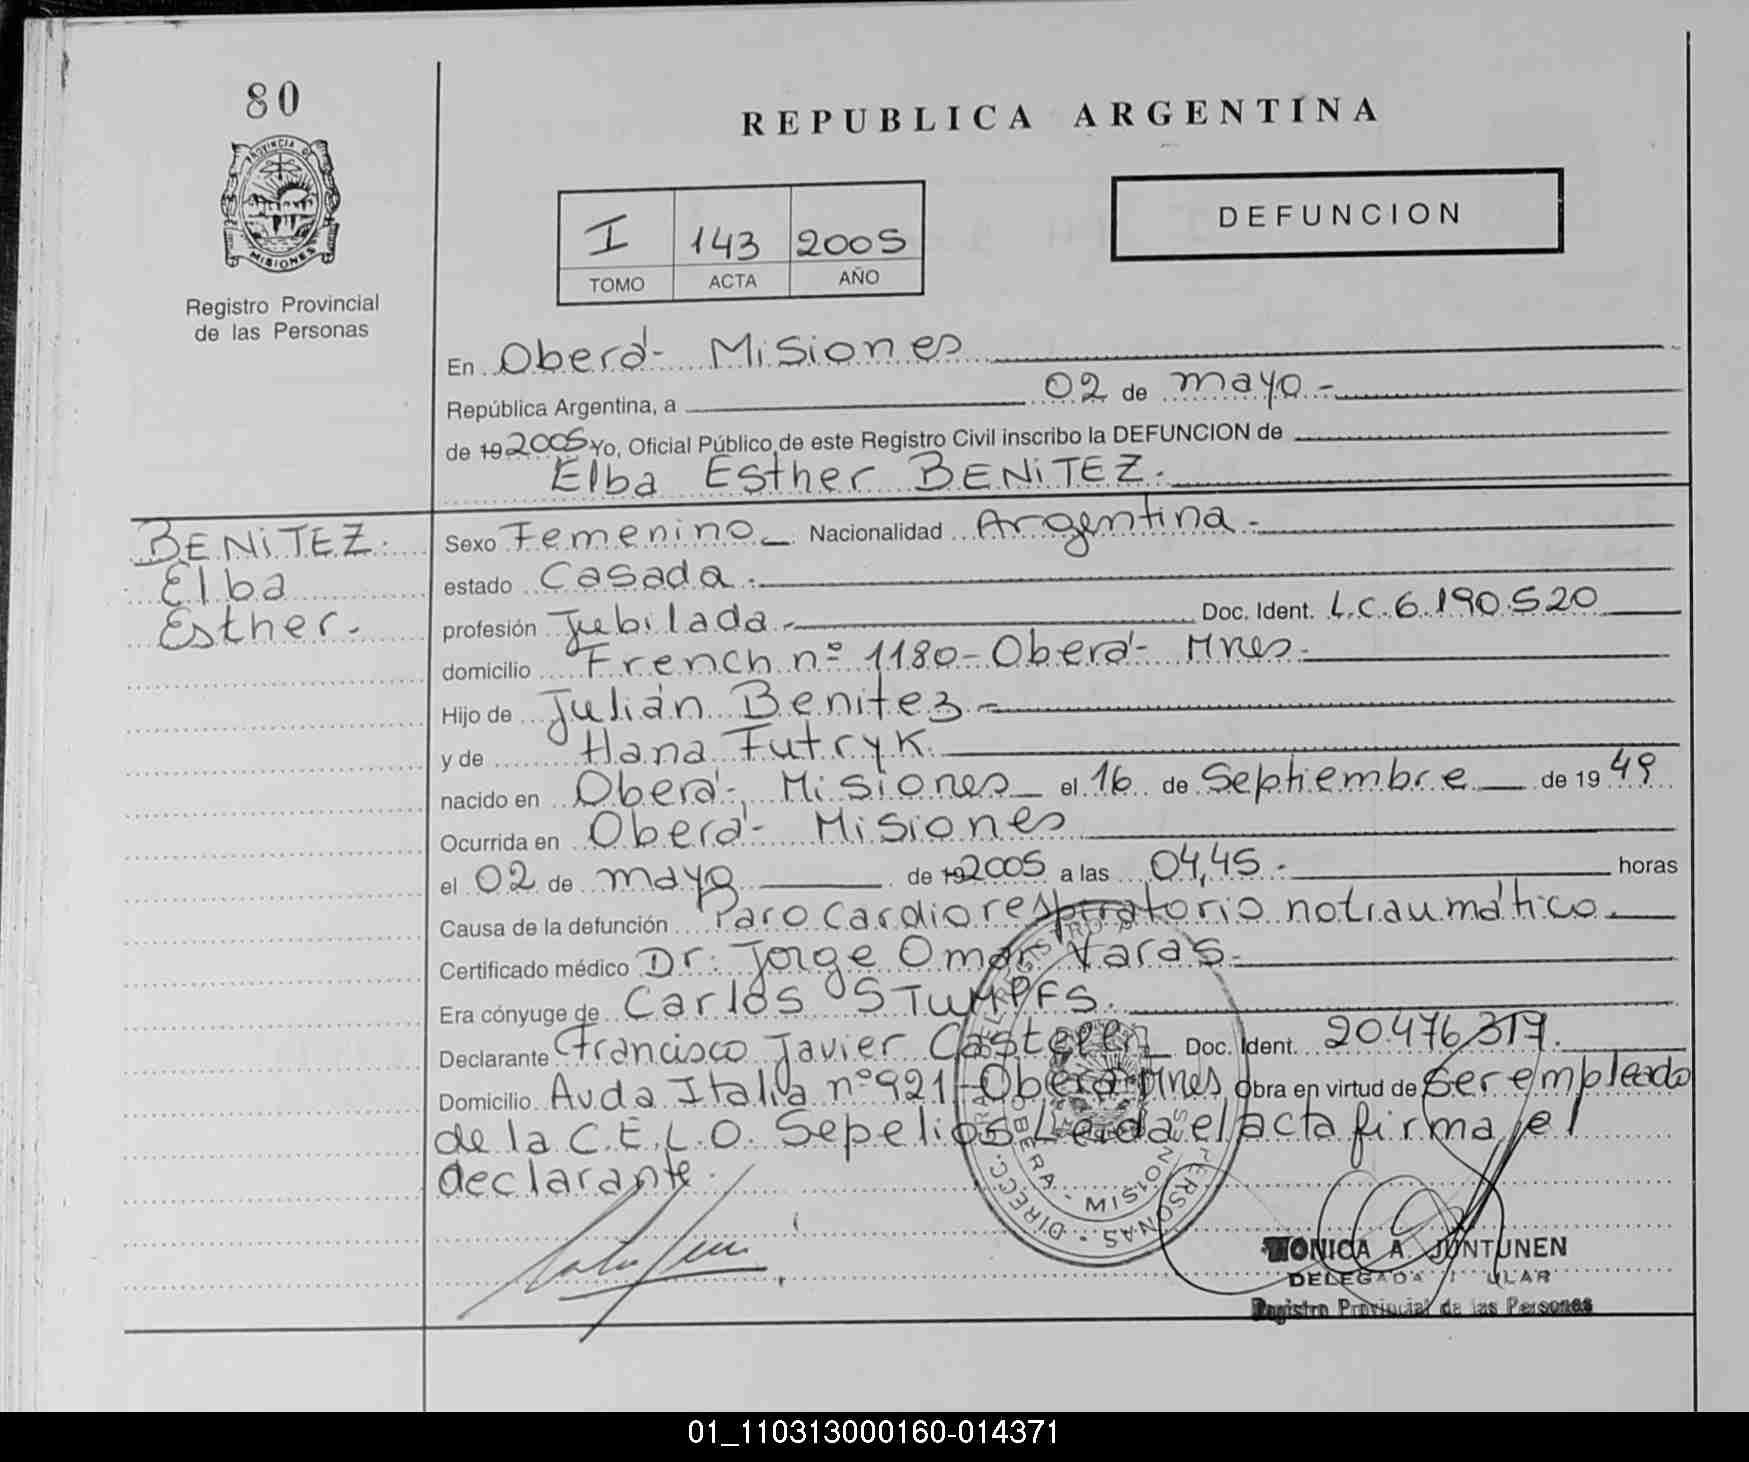 80
PROVINCIA DE
MISIONES
Registro Provincial
de las Personas
REPUBLICA ARGENTINA
I 143 2005
TOMO ACTA AÑO
DEFUNCION
En Oberá- Misiones
República Argentina, a 02 de mayo.-
de 19 2005 Yo, Oficial Público de este Registro Civil inscribo la DEFUNCION de
Elba Esther BENITEZ.
BENITEZ.
Elba
Esther.
Sexo Femenino Nacionalidad Argentina.
estado Casada.
profesión Jubilada. Doc. Ident. L.C. 6.190.520
domicilio French nº 1180-Oberá- Mnes.
Hijo de Julián Benitez.
y de Hana Futryk.
nacido en Oberá-, Misiones el 16 de Septiembre de 19 49
Ocurrida en Oberá- Misiones
el 02 de mayo de 19 2005 a las 04,45. horas
Causa de la defunción Paro cardiorespiratorio notraumático.
Certificado médico Dr. Jorge Omar Varas.
Era cónyuge de Carlos STUMPFS.
Declarante Francisco Javier Doc. Ident. 20.476.317.
Domicilio Avda Italia nº 921-Oberá Mnes, obra en virtud de ser empleado
de la C.E.L.O. Sepelios. Leida el acta firma el
declarante.
OBERA - MISIONES
MONICA A. JUNTUNEN
DELEGADA
Registro Provincial de las Personas
01_110313000160-014371